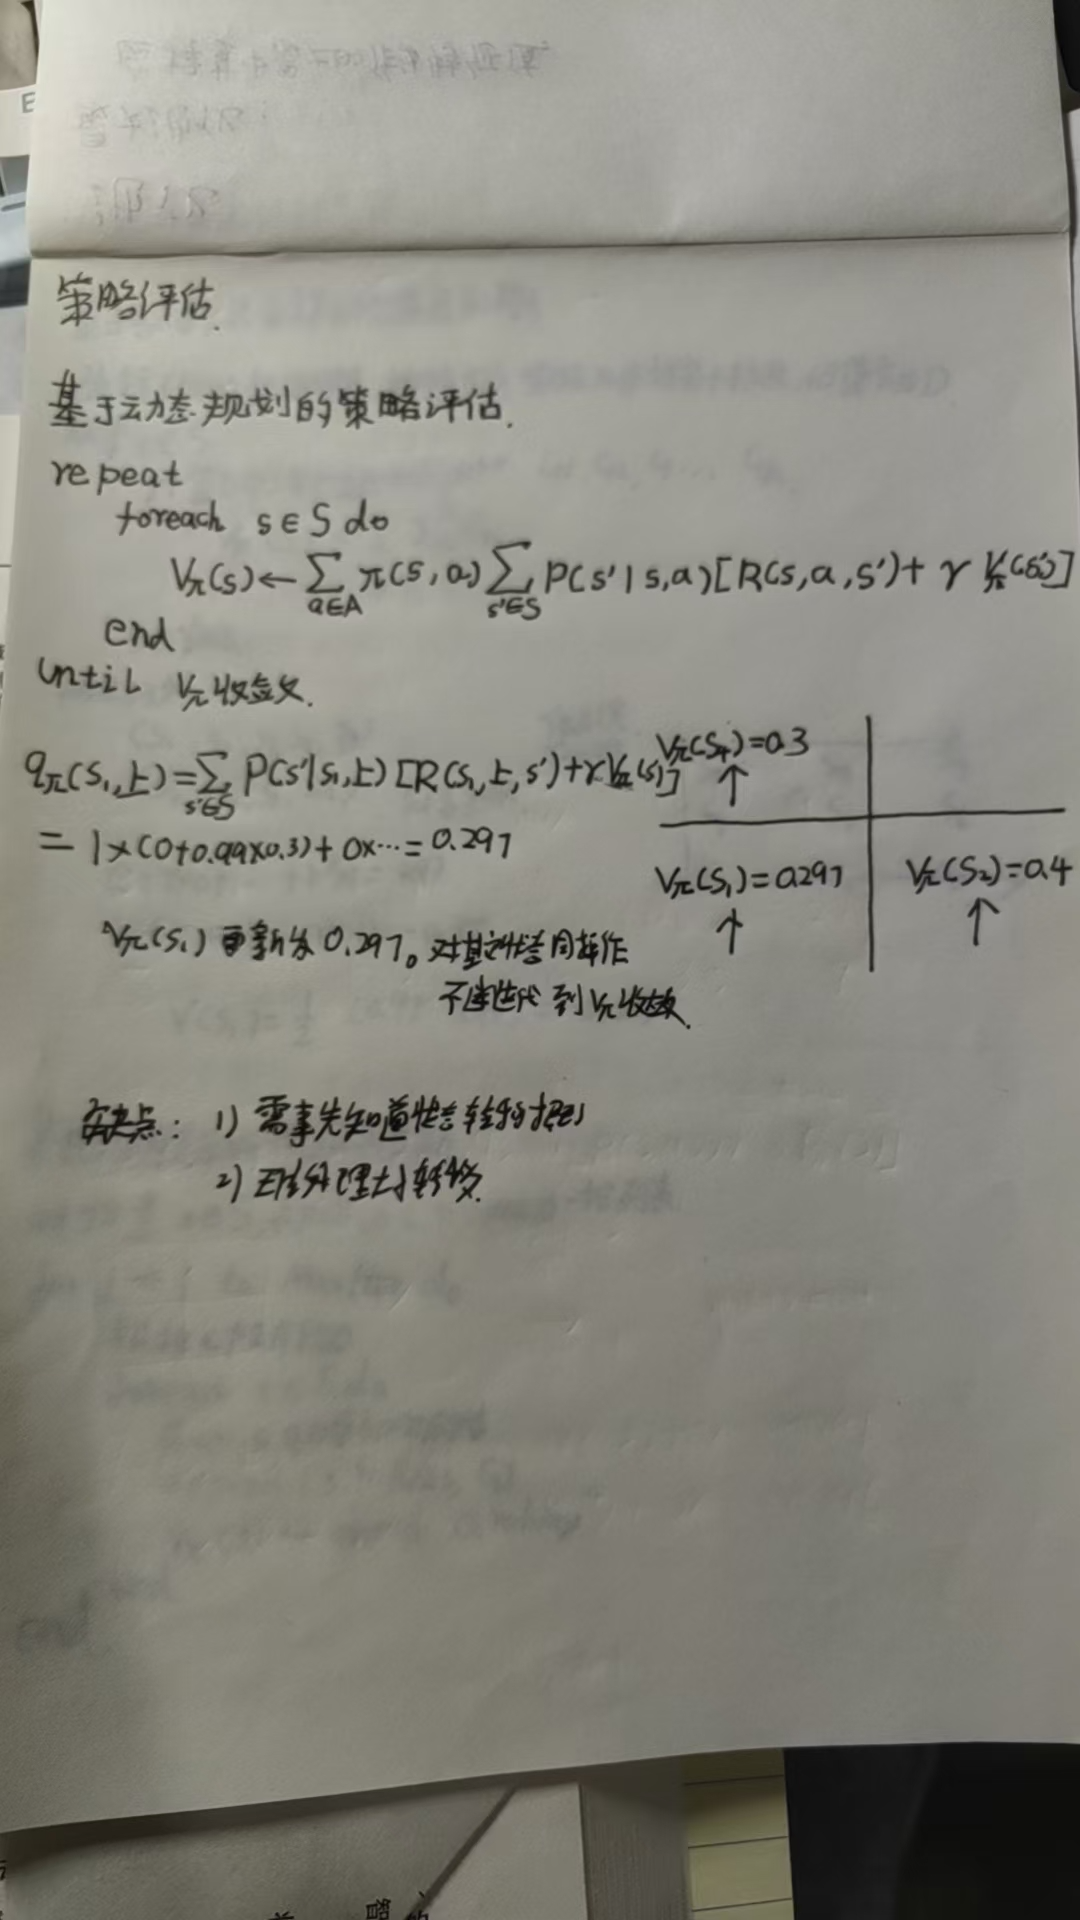 策略评估.
基于动态规划的策略评估.
repeat
foreach s∈S do
Vπ(s)←∑a∈A π(s,a)∑s'∈S P(s'|s,a)[R(s,a,s')+γVπ(s')]
end
until Vπ收敛.
qπ(s₁,上)=∑s'∈S P(s'|s₁,上)[R(s₁,上,s')+γVπ(s')]
=1×(0+0.99×0.3)+0×…=0.297
Vπ(S₄)=0.3
↑
Vπ(S₁)=0.297 Vπ(S₂)=0.4
↑ ↑
Vπ(s₁)更新为0.297。对其它状态同样操作
不断迭代到Vπ收敛.
缺点: 1) 需事先知道状态转移
2)